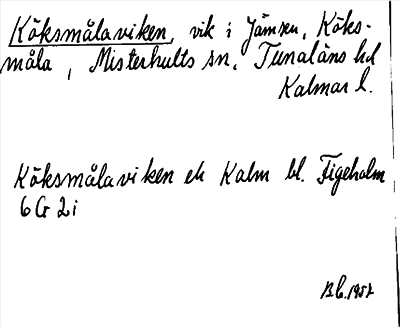 Köksmålaviken, vik i Jämsen, Köks-
måla, Misterhults sn. Tunaläns hd
Kalmar l.
Köksmålaviken ek Kalm bl. Figeholm
6 G 2i
1957